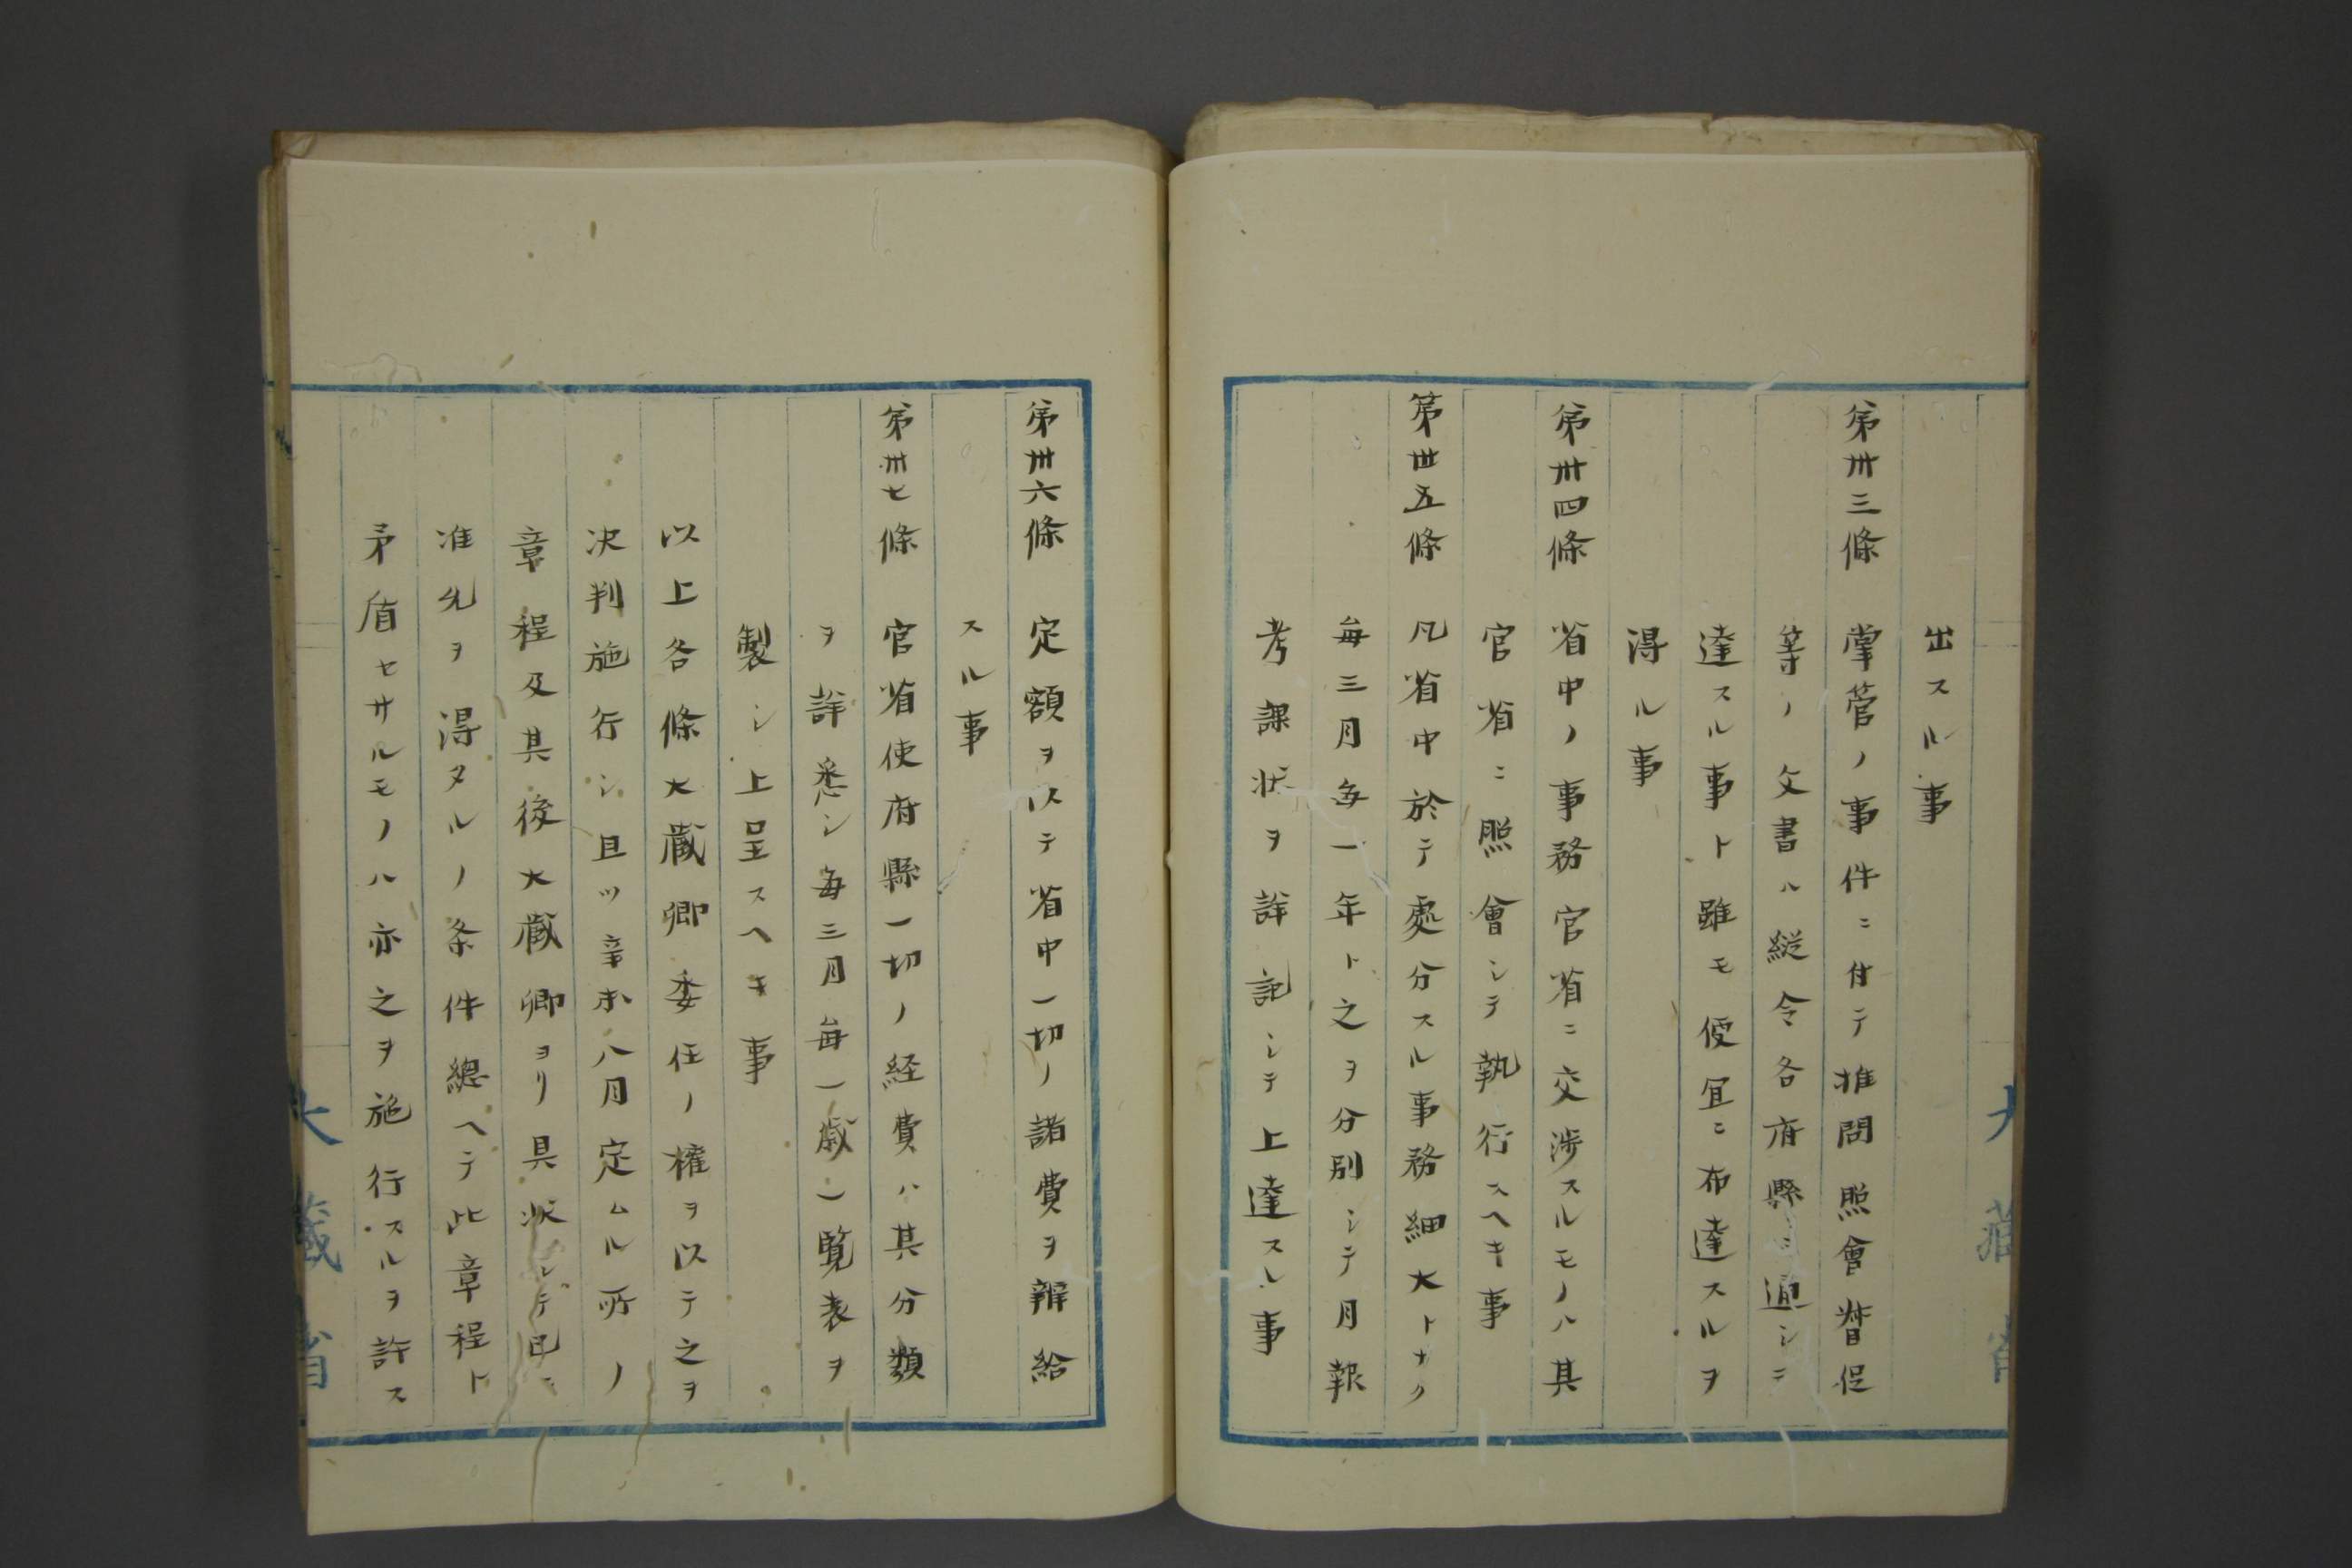 出スル事
第卅三條 掌管ノ事件ニ付テ推問照會督促
等ノ文書ハ縦令各府縣ニ通シニ
達スル事ト雖モ便宜ニ布達スルヲ
得ル事
第卅四條 省中ノ事務官省ニ交渉スルモノハ其
官省ニ照會シテ執行スヘキ事
第丗五條 凡省中於テ處分スル事務細大トナク
毎三月毎一年ト之ヲ分別シテ月報
考課状ヲ詳記シテ上達スル事
第卅六條 定額ヲ以テ省中一切ノ諸費ヲ辨給
スル事
第卅七條 官省使府縣一切ノ経費ハ其分類
ヲ詳悉シ毎三月毎一歳一覧表ヲ
製シ上呈スヘキ事
以上各條大蔵卿委任ノ權ヲ以テ之ヲ
决判施行シ且ツ辛未八月定ムル所ノ
章程及其後大蔵卿ヨリ具状シテ已ニ
准允ヲ得タルノ条件總ヘテ此章程ト
矛盾セサルモノハ亦之ヲ施行スルヲ許ス
大藏省